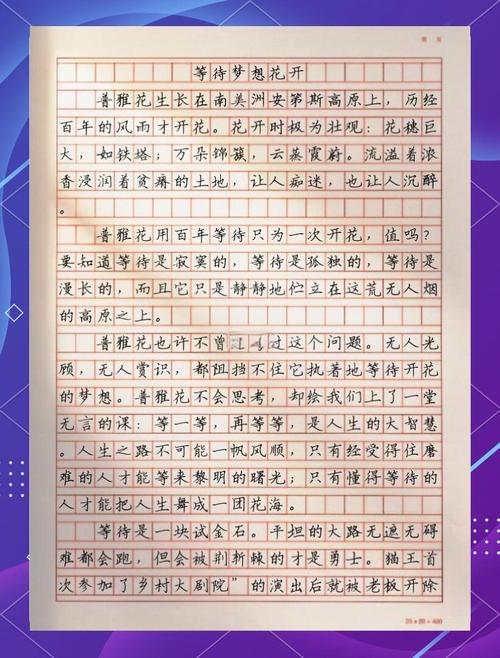 等待梦想花开
普雅花生长在南美洲安第斯高原上，历经
百年的风雨才开花。花开时极为壮观：花穗巨
大，如铁塔；万朵锦簇，云蒸霞蔚。流溢着浓
香浸润着贫瘠的土地，让人痴迷，也让人沉醉
。
普雅花用百年等待只为一次开花，值吗？
要知道等待是寂寞的，等待是孤独的，等待是
漫长的，而且它只是静静地伫立在这荒无人烟
的高原之上。
普雅花也许不曾过这个问题。无人光
顾，无人赏识，都阻挡不住它执着地等待开花
的梦想。普雅花不会思考，却给我们上了一堂
无言的课：等一等，再等等，是人生的大智慧
。人生之路不可能一帆风顺，只有经受得住磨
难的人才能等来黎明的曙光；只有懂得等待的
人才能把人生舞成一团花海。
等待是一块试金石。平坦的大路无遮无碍
难都会跑，但会被荆斩棘的才是勇士。猫王首
次参加了乡村大剧院”的演出后就被老板开除
20×20=400